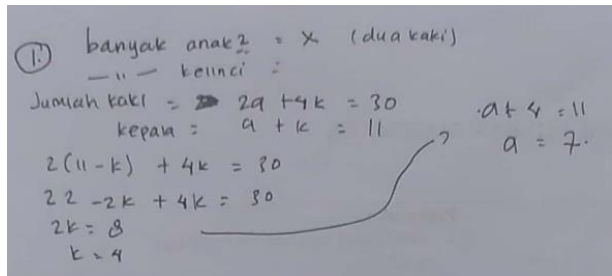 1. banyak anak2 = x (dua kaki)
— " — kelinci =
Jumlah kaki = 2a + 4k = 30
kepala = a + k = 11
2(11 - k) + 4k = 30
22 - 2k + 4k = 30
2k = 8
k = 4
a + 4 = 11
a = 7.